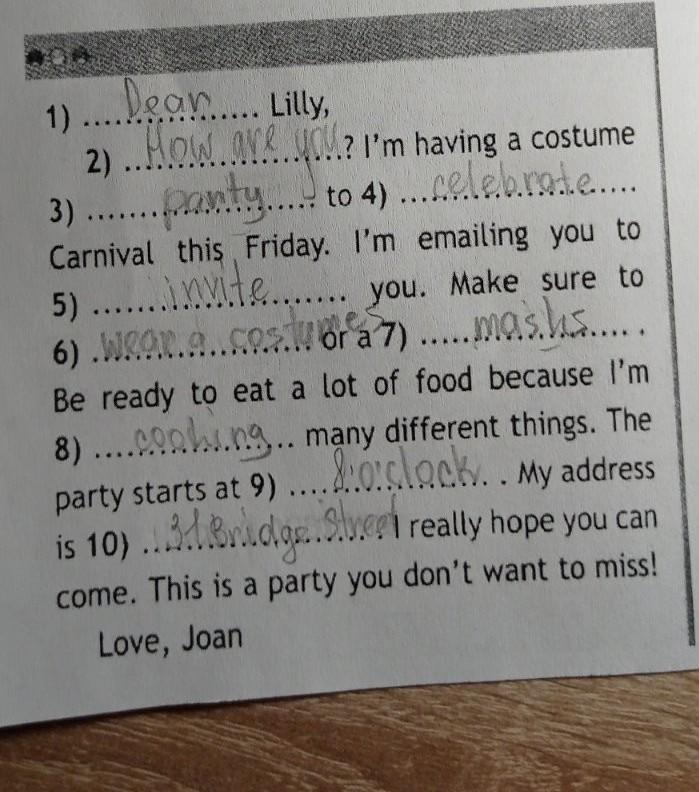 1) .....Dear...... Lilly,
2) ...How are you...? I'm having a costume
3) .......party...... to 4) ...celebrate.....
Carnival this Friday. I'm emailing you to
5) .......invite....... you. Make sure to
6) .wear a costumes. or a 7) .....masks.....
Be ready to eat a lot of food because I'm
8) ....cooking.. many different things. The
party starts at 9) ....8 o'clock.. . My address
is 10) ...31 Bridge Street. I really hope you can
come. This is a party you don't want to miss!
Love, Joan